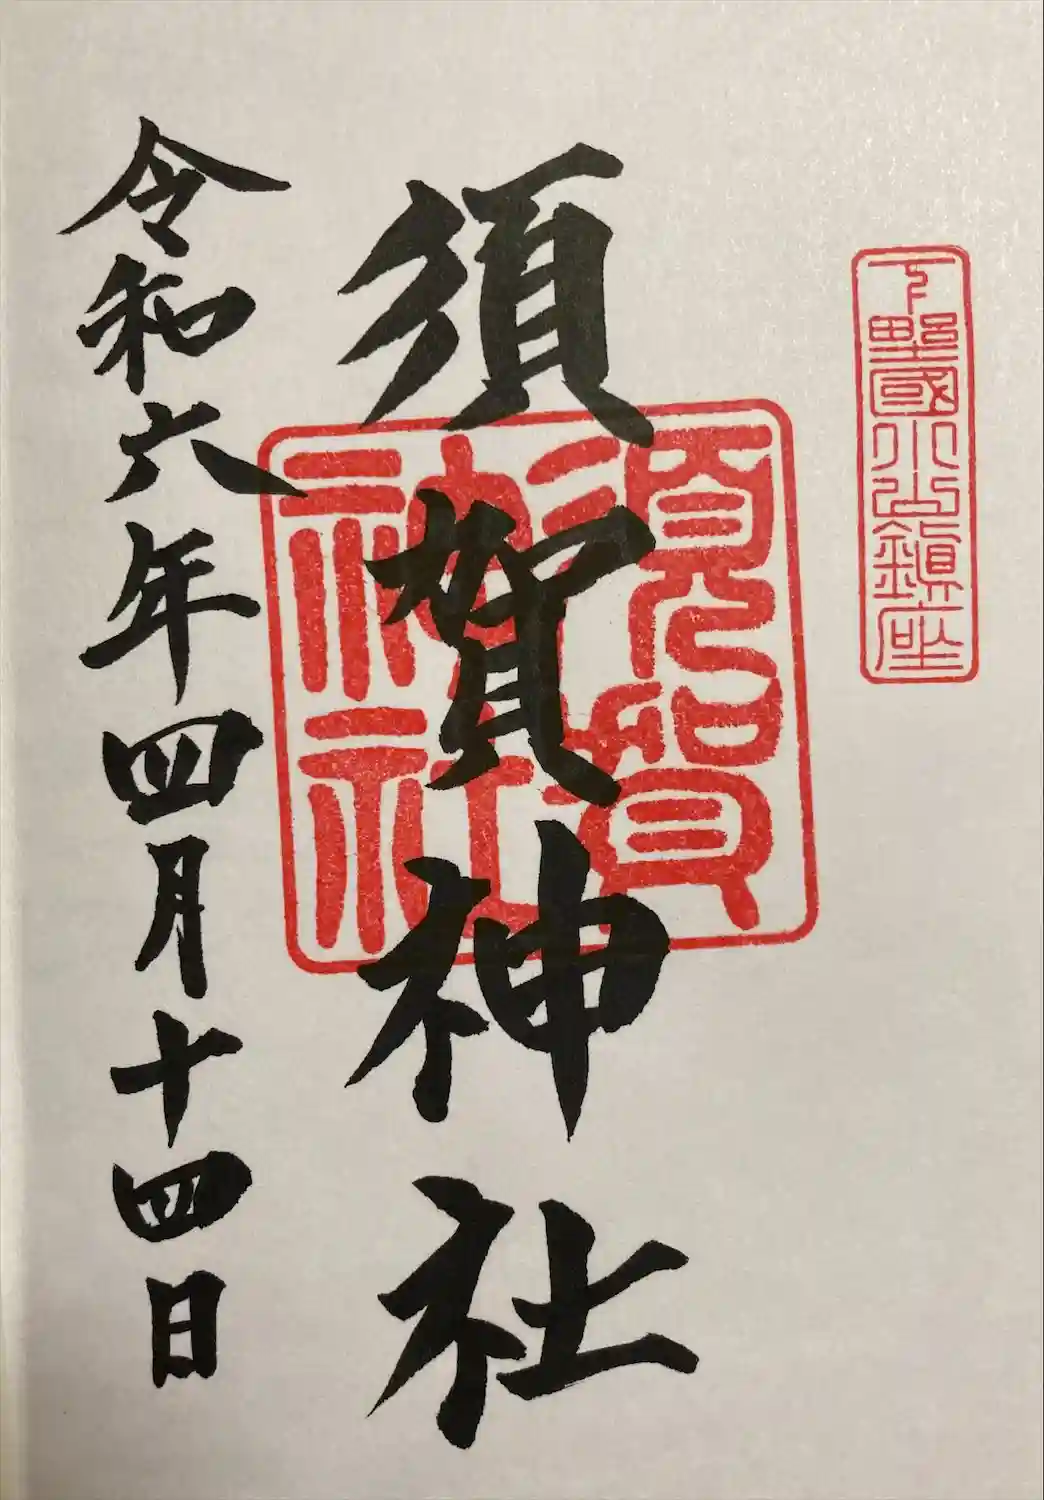 下野國小山鎮座
須賀神社
須賀
神社
令和六年四月十四日